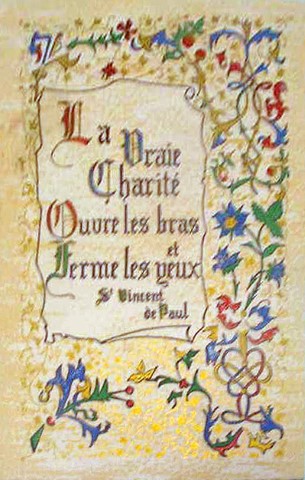 La
Vraie
Charité
Ouvre les bras
et
Ferme les yeux
St Vincent
de Paul